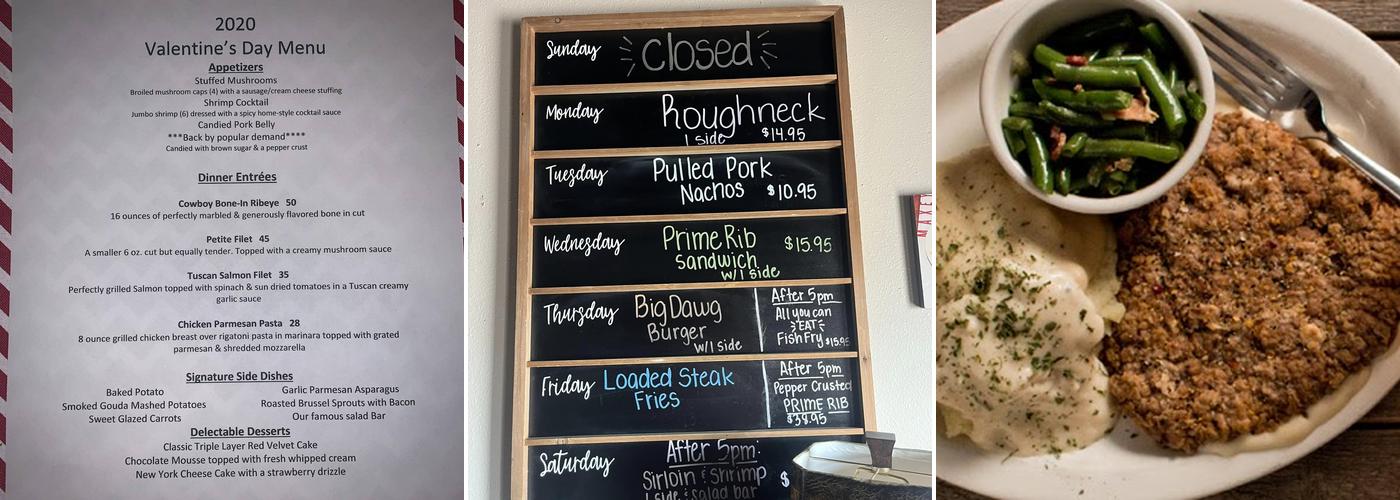 2020
Valentine's Day Menu
Appetizers
Stuffed Mushrooms
Broiled mushroom caps (4) with a sausage/cream cheese stuffing
Shrimp Cocktail
Jumbo shrimp (6) dressed with a spicy home-style cocktail sauce
Candied Pork Belly
***Back by popular demand****
Candied with brown sugar & a pepper crust
Dinner Entrées
Cowboy Bone-In Ribeye 50
16 ounces of perfectly marbled & generously flavored bone in cut
Petite Filet 45
A smaller 6 oz. cut but equally tender. Topped with a creamy mushroom sauce
Tuscan Salmon Filet 35
Perfectly grilled Salmon topped with spinach & sun dried tomatoes in a Tuscan creamy
garlic sauce
Chicken Parmesan Pasta 28
8 ounce grilled chicken breast over rigatoni pasta in marinara topped with grated
parmesan & shredded mozzarella
Signature Side Dishes
Baked Potato
Smoked Gouda Mashed Potatoes
Sweet Glazed Carrots
Garlic Parmesan Asparagus
Roasted Brussel Sprouts with Bacon
Our famous salad Bar
Delectable Desserts
Classic Triple Layer Red Velvet Cake
Chocolate Mousse topped with fresh whipped cream
New York Cheese Cake with a strawberry drizzle
Sunday
Closed
Monday
Roughneck
1 side $14.95
Tuesday
Pulled Pork
Nachos $10.95
Wednesday
Prime Rib $15.95
sandwich
w/1 side
Thursday
Big Dawg
Burger
w/1 side
After 5pm
All you can
EAT
Fish Fry $15.95
Friday
Loaded Steak
Fries
After 5pm
Pepper Crusted
PRIME RIB
$38.95
Saturday
After 5pm:
Sirloin & Shrimp $
1 side & salad bar